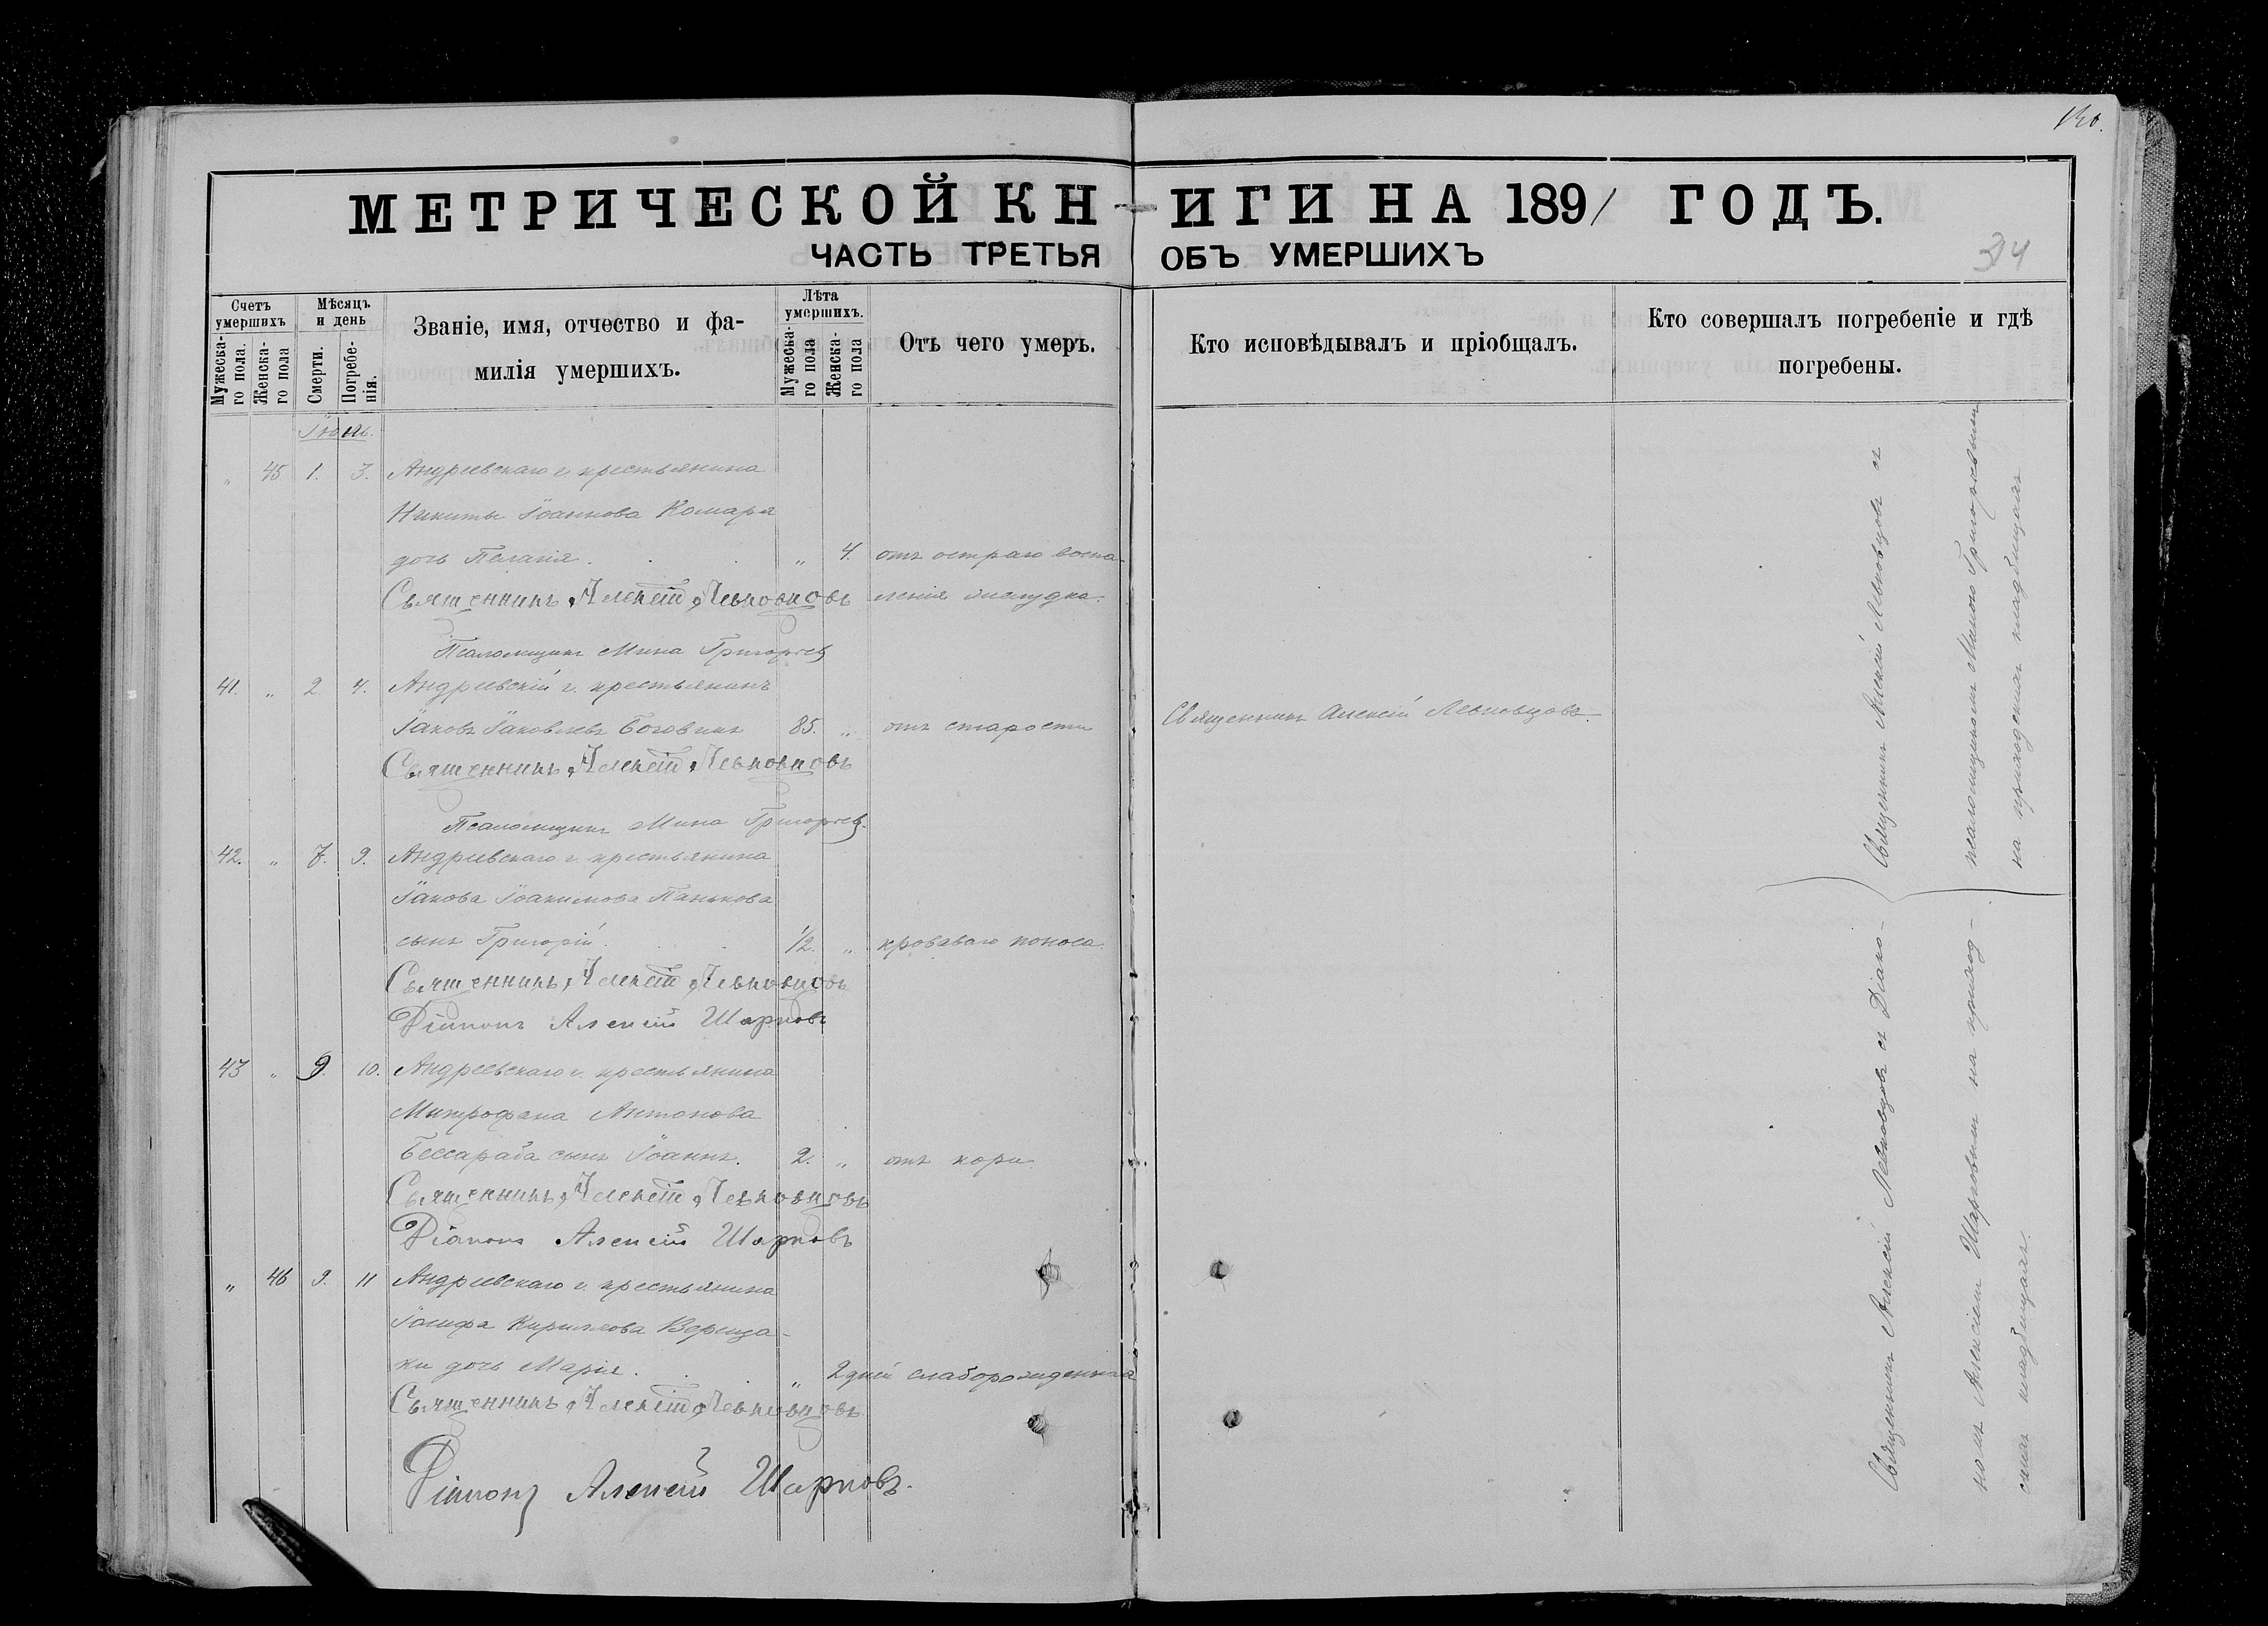 130.
МЕТРИЧЕСКОЙ КНИГИ НА 1891 ГОДЪ.
ЧАСТЬ ТРЕТЬЯ ОБЪ УМЕРШИХЪ
34
Счетъ умершихъ
Мужеска-го пола.
Женска-го пола
Мѣсяцъ и день
Смерти.
Погребе-нія.
Званіе, имя, отчество и фа-
милія умершихъ.
Лѣта умершихъ.
Мужеска-го пола
Женска-го пола
Отъ чего умеръ.
Кто исповѣдывалъ и пріобщалъ.
Кто совершалъ погребеніе и гдѣ
погребены.
„ 45 1. 3. Андреевскаго с. крестьянина
Никиты Іоаннова Комара
дочь Пелагія. „ 4. отъ остраго воспа-
Священникъ Алексій Левковцовъ ленія желудка.
Псаломщикъ Мина Григорьев
41. „ 2 4. Андреевскій с. крестьянинъ
Іаковъ Іаковлевъ 85. „ отъ старости Священникъ Алексій Левковцовъ.
Священникъ Алексій Левковцовъ
Псаломщикъ Мина Григорьев.
42. „ 7. 9. Андреевскаго с. крестьянина
Іакова Іоакимова Панькова
сынъ Григорій. 1/2. „ кроваваго поноса.
Священникъ Алексій Левковцовъ
Діаконъ Алексій Шарковъ
43 „ 9. 10. Андреевскаго с. крестьянина
Митрофана Антонова
Бессараба сынъ Іоаннъ. 2. „ отъ кори.
Священникъ Алексій Левковцовъ
Діаконъ Алексій Шарковъ
„ 46 9. 11 Андреевскаго с. крестьянина
Іосифа Кириллова Вереща-
ки дочь Марія. „ 2 дней слаборожденная
Священникъ Алексій Левковцовъ
Діаконъ Алексій Шарковъ.
Священникъ Алексій Левковцовъ съ
псаломщикомъ Миною Григорьевымъ
на приходскомъ кладбищѣ
Священникъ Алексій Левковцовъ съ Діако-
номъ Алексіемъ Шарковымъ на приход-
скомъ кладбищѣ.